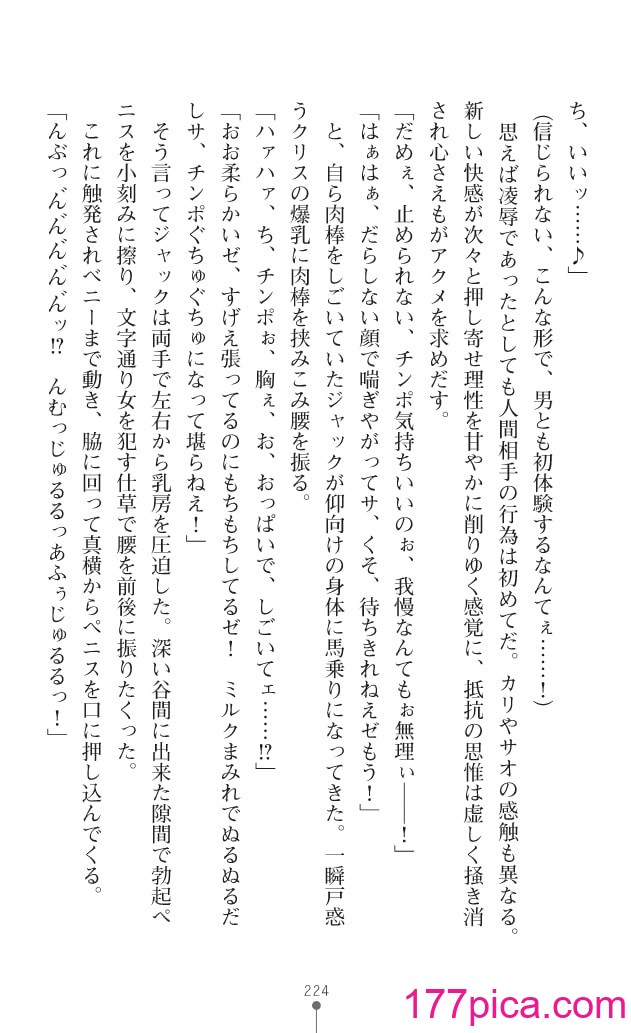 ち、いいッ……♪」
(信じられない、こんな形で、男とも初体験するなんてぇ……！)
思えば凌辱であったとしても人間相手の行為は初めてだ。カリやサオの感触も異なる。
新しい快感が次々と押し寄せ理性を甘やかに削りゆく感覚に、抵抗の思惟は虚しく掻き消
され心さえもがアクメを求めだす。
「だめぇ、止められない、チンポ気持ちいいのぉ、我慢なんてもぉ無理ぃ――！」
「はぁはぁ、だらしない顔で喘ぎやがってサ、くそ、待ちきれねえゼもう！」
と、自ら肉棒をしごいていたジャックが仰向けの身体に馬乗りになってきた。一瞬戸惑
うクリスの爆乳に肉棒を挟みこみ腰を振る。
「ハァハァ、ち、チンポぉ、胸ぇ、お、おっぱいで、しごいてェ……!?」
「おお柔らかいゼ、すげえ張ってるのにもちもちしてるゼ！　ミルクまみれでぬるぬるだ
しサ、チンポぐちゅぐちゅになって堪らねえ！」
そう言ってジャックは両手で左右から乳房を圧迫した。深い谷間に出来た隙間で勃起ペ
ニスを小刻みに擦り、文字通り女を犯す仕草で腰を前後に振りたくった。
これに触発されベニーまで動き、脇に回って真横からペニスを口に押し込んでくる。
「んぶっん゛ん゛ん゛ん゛ん゛ッ!?　んむっじゅるるっあふぅじゅるるっ！」
224
177pica.com